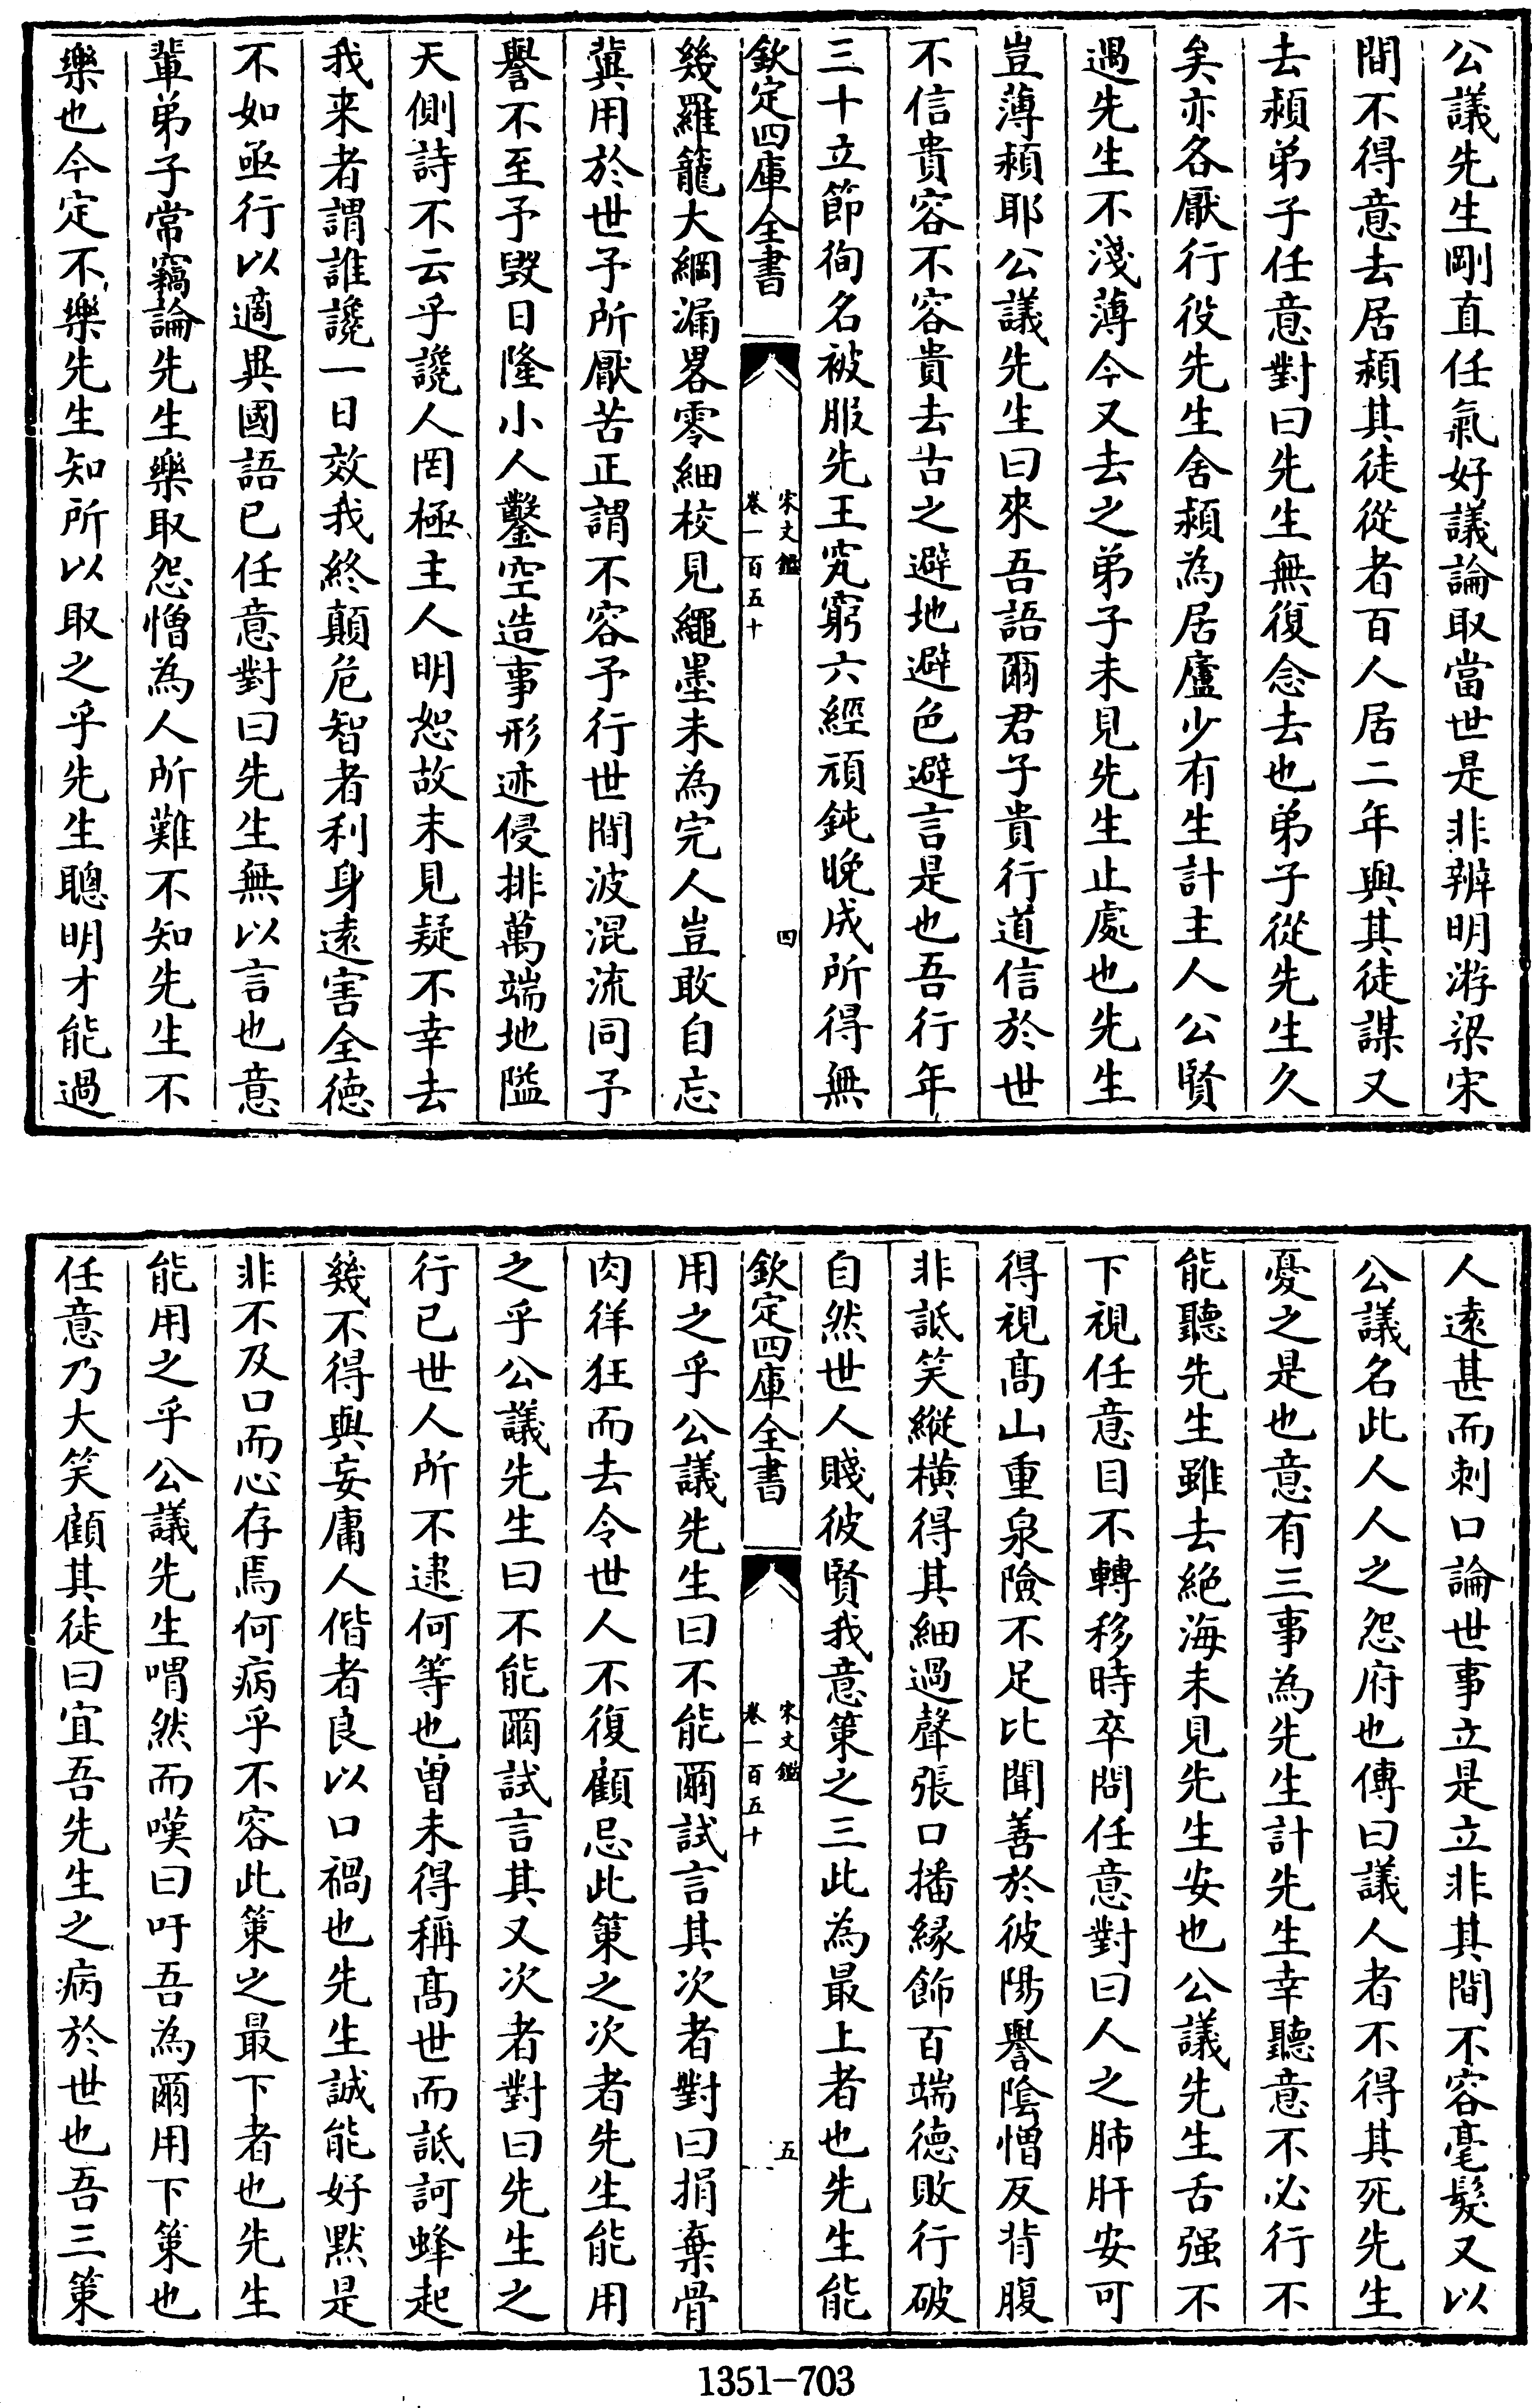 公議先生剛直任氣好議論取當世是非辨明游梁宋
間不得意去居潁其徒從者百人居二年與其徒謀又
去潁弟子任意對曰先生無復念去也弟子從先生久
矣亦各厭行役先生舍潁為居廬少有生計主人公賢
遇先生不淺薄今又去之弟子未見先生止處也先生
豈薄潁耶公議先生曰來吾語爾君子貴行道信於世
不信貴容不容貴去古之避地避色避言是也吾行年
三十立節徇名被服先王究窮六經頑鈍晚成所得無
欽定四庫全書
宋文鑑
卷一百五十
四
幾羅籠大綱漏畧零細校見繩墨未為完人豈敢自忘
冀用於世予所厭苦正謂不容予行世間波混流同予
譽不至予毀日隆小人鑿空造事形迹侵排萬端地隘
天側詩不云乎讒人罔極主人明恕故未見疑不幸去
我来者謂誰讒一日效我終顛危智者利身遠害全德
不如亟行以適異國語已任意對曰先生無以言也意
輩弟子常竊論先生樂取怨憎為人所難不知先生不
樂也今定不樂先生知所以取之乎先生聰明才能過
人遠甚而刺口論世事立是立非其間不容毫髮又以
公議名此人人之怨府也傳曰議人者不得其死先生
憂之是也意有三事為先生計先生幸聽意不必行不
能聽先生雖去絕海未見先生安也公議先生舌强不
下視任意目不轉移時卒問任意對曰人之肺肝安可
得視髙山重泉險不足比聞善於彼陽譽陰憎反背腹
非詆笑縱橫得其細過聲張口播緣飾百端德敗行破
自然世人賤彼賢我意策之三此為最上者也先生能
欽定四庫全書
宋文鑑
卷一百五十
五
用之乎公議先生曰不能爾試言其次者對曰捐棄骨
肉徉狂而去令世人不復顧忌此策之次者先生能用
之乎公議先生曰不能爾試言其又次者對曰先生之
行已世人所不逮何等也曾未得稱髙世而詆訶蜂起
幾不得與妄庸人偕者良以口禍也先生誠能好黙是
非不及口而心存焉何病乎不容此策之最下者也先生
能用之乎公議先生喟然而嘆曰吁吾為爾用下策也
任意乃大笑顧其徒曰宜吾先生之病於世也吾三策
1351-703